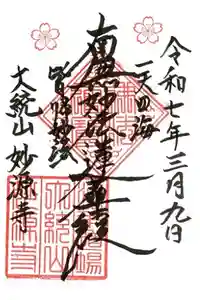 令和七年三月九日
一天四海
南無妙法蓮華経
皆帰妙法
大統山 妙源寺